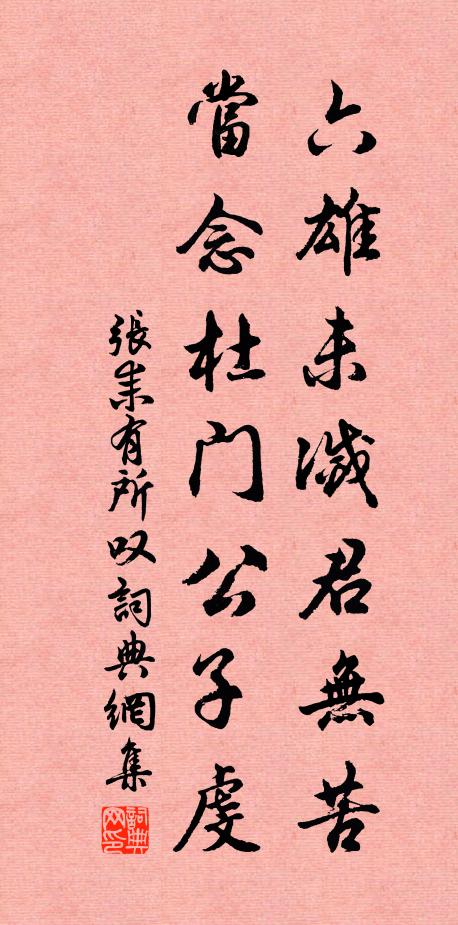 六雄未滅君無苦
當念杜門公子虔
張耒有所叹詞典網集
詞典网印